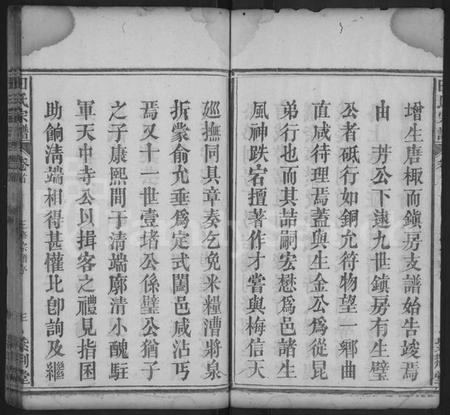 增生唐椒而鎮房支譜始告竣焉
由 芳公下逮九世鎮房有生璧
公者砥行如銅允符物望一鄉曲
直咸待理焉蓋與生金公爲從昆
弟行也而其詰嗣宏懋爲邑諸生
風神跌宕擅著作才嘗與梅信天
巡撫同具章奏乞免米糧漕將泉
折蒙俞允垂爲定式闔邑咸沾丐
焉又十一世壹堵公係璧公猶子
之子康熙間于清端廓清小醜駐
軍天中寺公以揖客之禮見指囷
助餉清端相得甚懽比卽詢及繼
田氏宗譜 卷首
紫荆堂